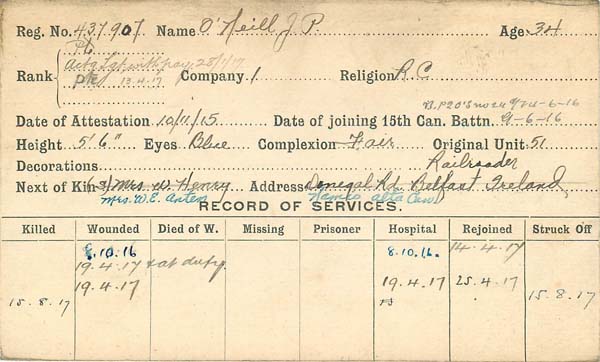 Reg. No. 437907 Name O'Neill J. P. Age 34
Pte
Actg Sgt with pay 25/1/17
Rank Pte 13.4.17 Company 1 Religion R.C
B.P20's no 24 9/24-6-16
Date of Attestation 10/11/15 Date of joining 15th Can. Battn. 9-6-16
Height 5' 6" Eyes Blue Complexion Fair Original Unit 51
Decorations Railroader
Next of Kin (s) Mrs. W. Henry Address Donegal Rd. Belfast Ireland,
Mrs. W.E. Anten Namao Alta Can
RECORD OF SERVICES.
Killed Wounded Died of W. Missing Prisoner Hospital Rejoined Struck Off
8.10.16 8.10.16. 14-4-17
19.4.17 + at duty
19.4.17 19.4.17 25.4.17
15.8.17 15.8.17